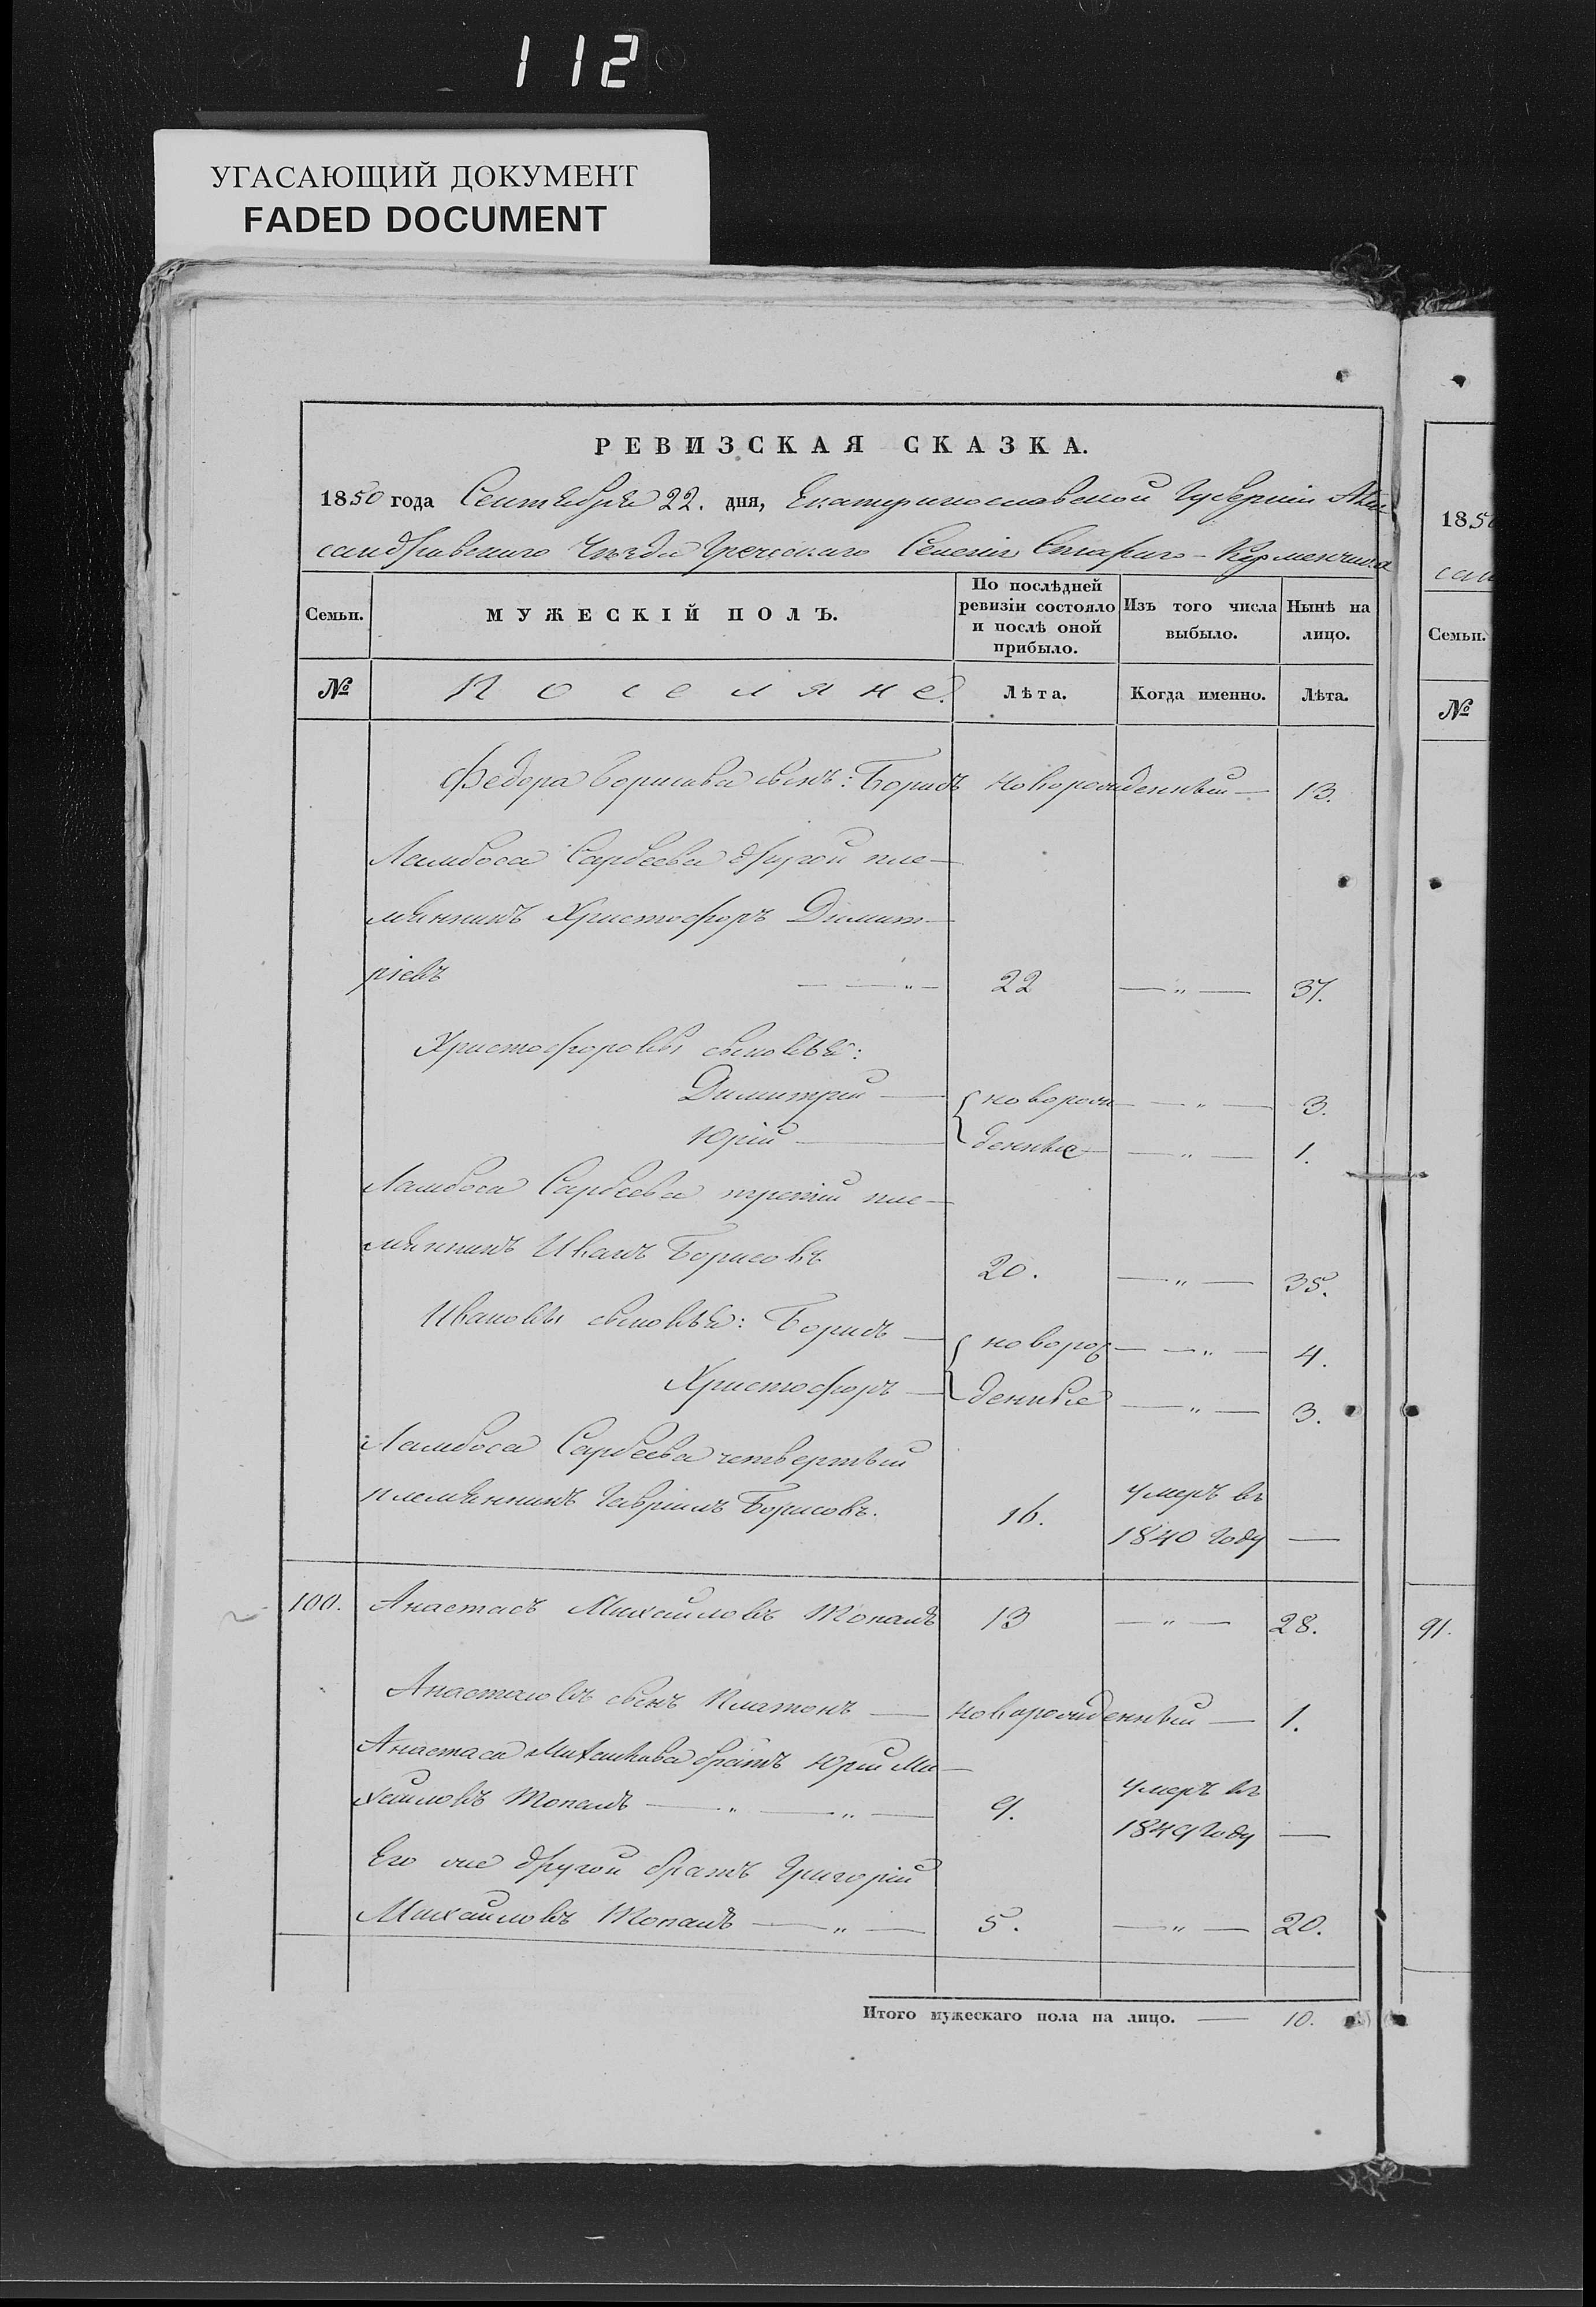 112
УГАСАЮЩИЙ ДОКУМЕНТ
FADED DOCUMENT
РЕВИЗСКАЯ СКАЗКА.
1850 года Сентября 22. дня, Екатеринославской Губерніи Алек
сандровскаго Уѣзда Греческаго Селенія Стараго-Керменчика
Семьи. МУЖЕСКІЙ ПОЛЪ. По послѣдней ревизіи состояло и послѣ оной прибыло. Изъ того числа выбыло. Нынѣ на лицо.
№ Поселяне. Лѣта. Когда именно. Лѣта.
Федора Борисова сынъ: Борисъ новорожденный — 13.
Ламбоса Сарбеева другой пле-
мянникъ Христофоръ Димит-
ріевъ — — „ — 22 — „ — 37.
Христофоровы сыновья:
Димитрій — { новорож — — „ — 3.
Юрій — денные — — „ — 1.
Ламбоса Сарбеева третій пле-
мянникъ Иванъ Борисовъ 20. — „ — 35.
Ивановы сыновья: Борисъ — { новорож — — „ — 4.
Христофоръ — денные — „ — 3.
Ламбоса Сарбеева четвертый
племянникъ Гавріилъ Борисовъ. 16. умеръ въ
1840 году —
100. Анастасъ Михайловъ Топалъ 13 — „ — 28.
Анастасовъ сынъ Платонъ — новорожденный — 1.
Анастаса Михайлова братъ Юрій Ми-
хайловъ Топалъ — „ — „ — 9. умеръ въ
1849 году —
Его же другой братъ Григорій
Михайловъ Топалъ — „ — 5. — „ — 20.
Итого мужескаго пола на лицо. — 10.
1850
сан
Семьи.
№
91.